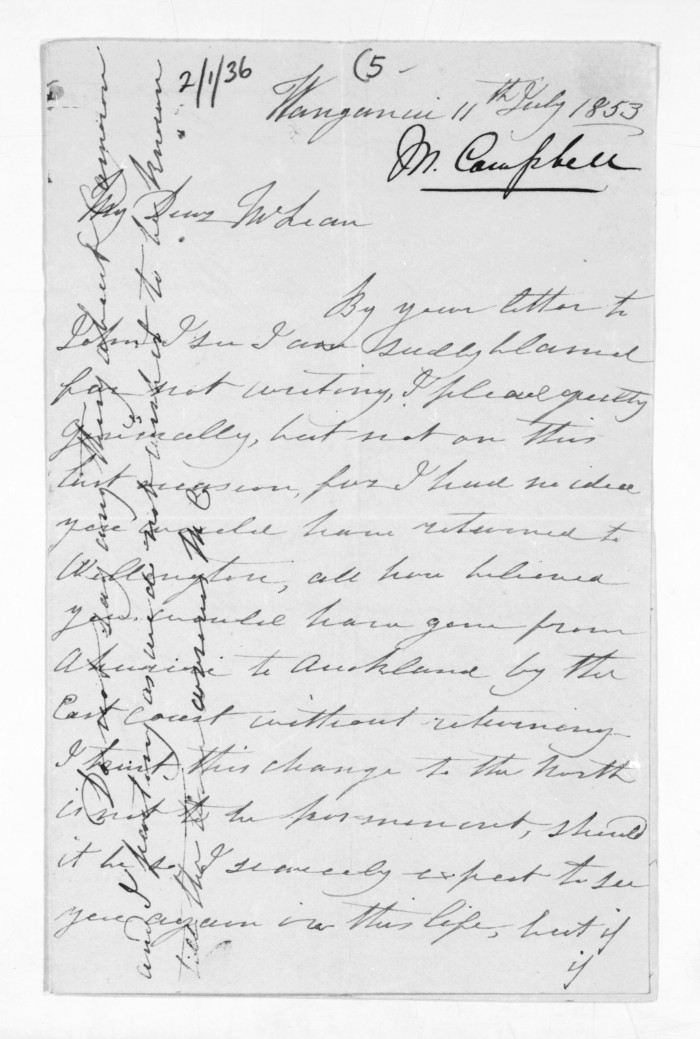 2/1/36
(5-
Wanganui 11th July 1853
M. Campbell
My Dear McLean
By your letter to
John I see I am sadly blamed
for not writing, I plead guilty
generally, but not on this
last occasion, for I had no idea
you would have returned to
Wellington, all here believed
you would have gone from
Ahuriri to Auckland by the
East Coast without returning.
I trust this change to the North
is not to be permanent, should
it be so I scarcely expect to see
you again in this life, but if
if
Do not say any thing about Cameron
and I parting as we do not wish it to be known
till the M C